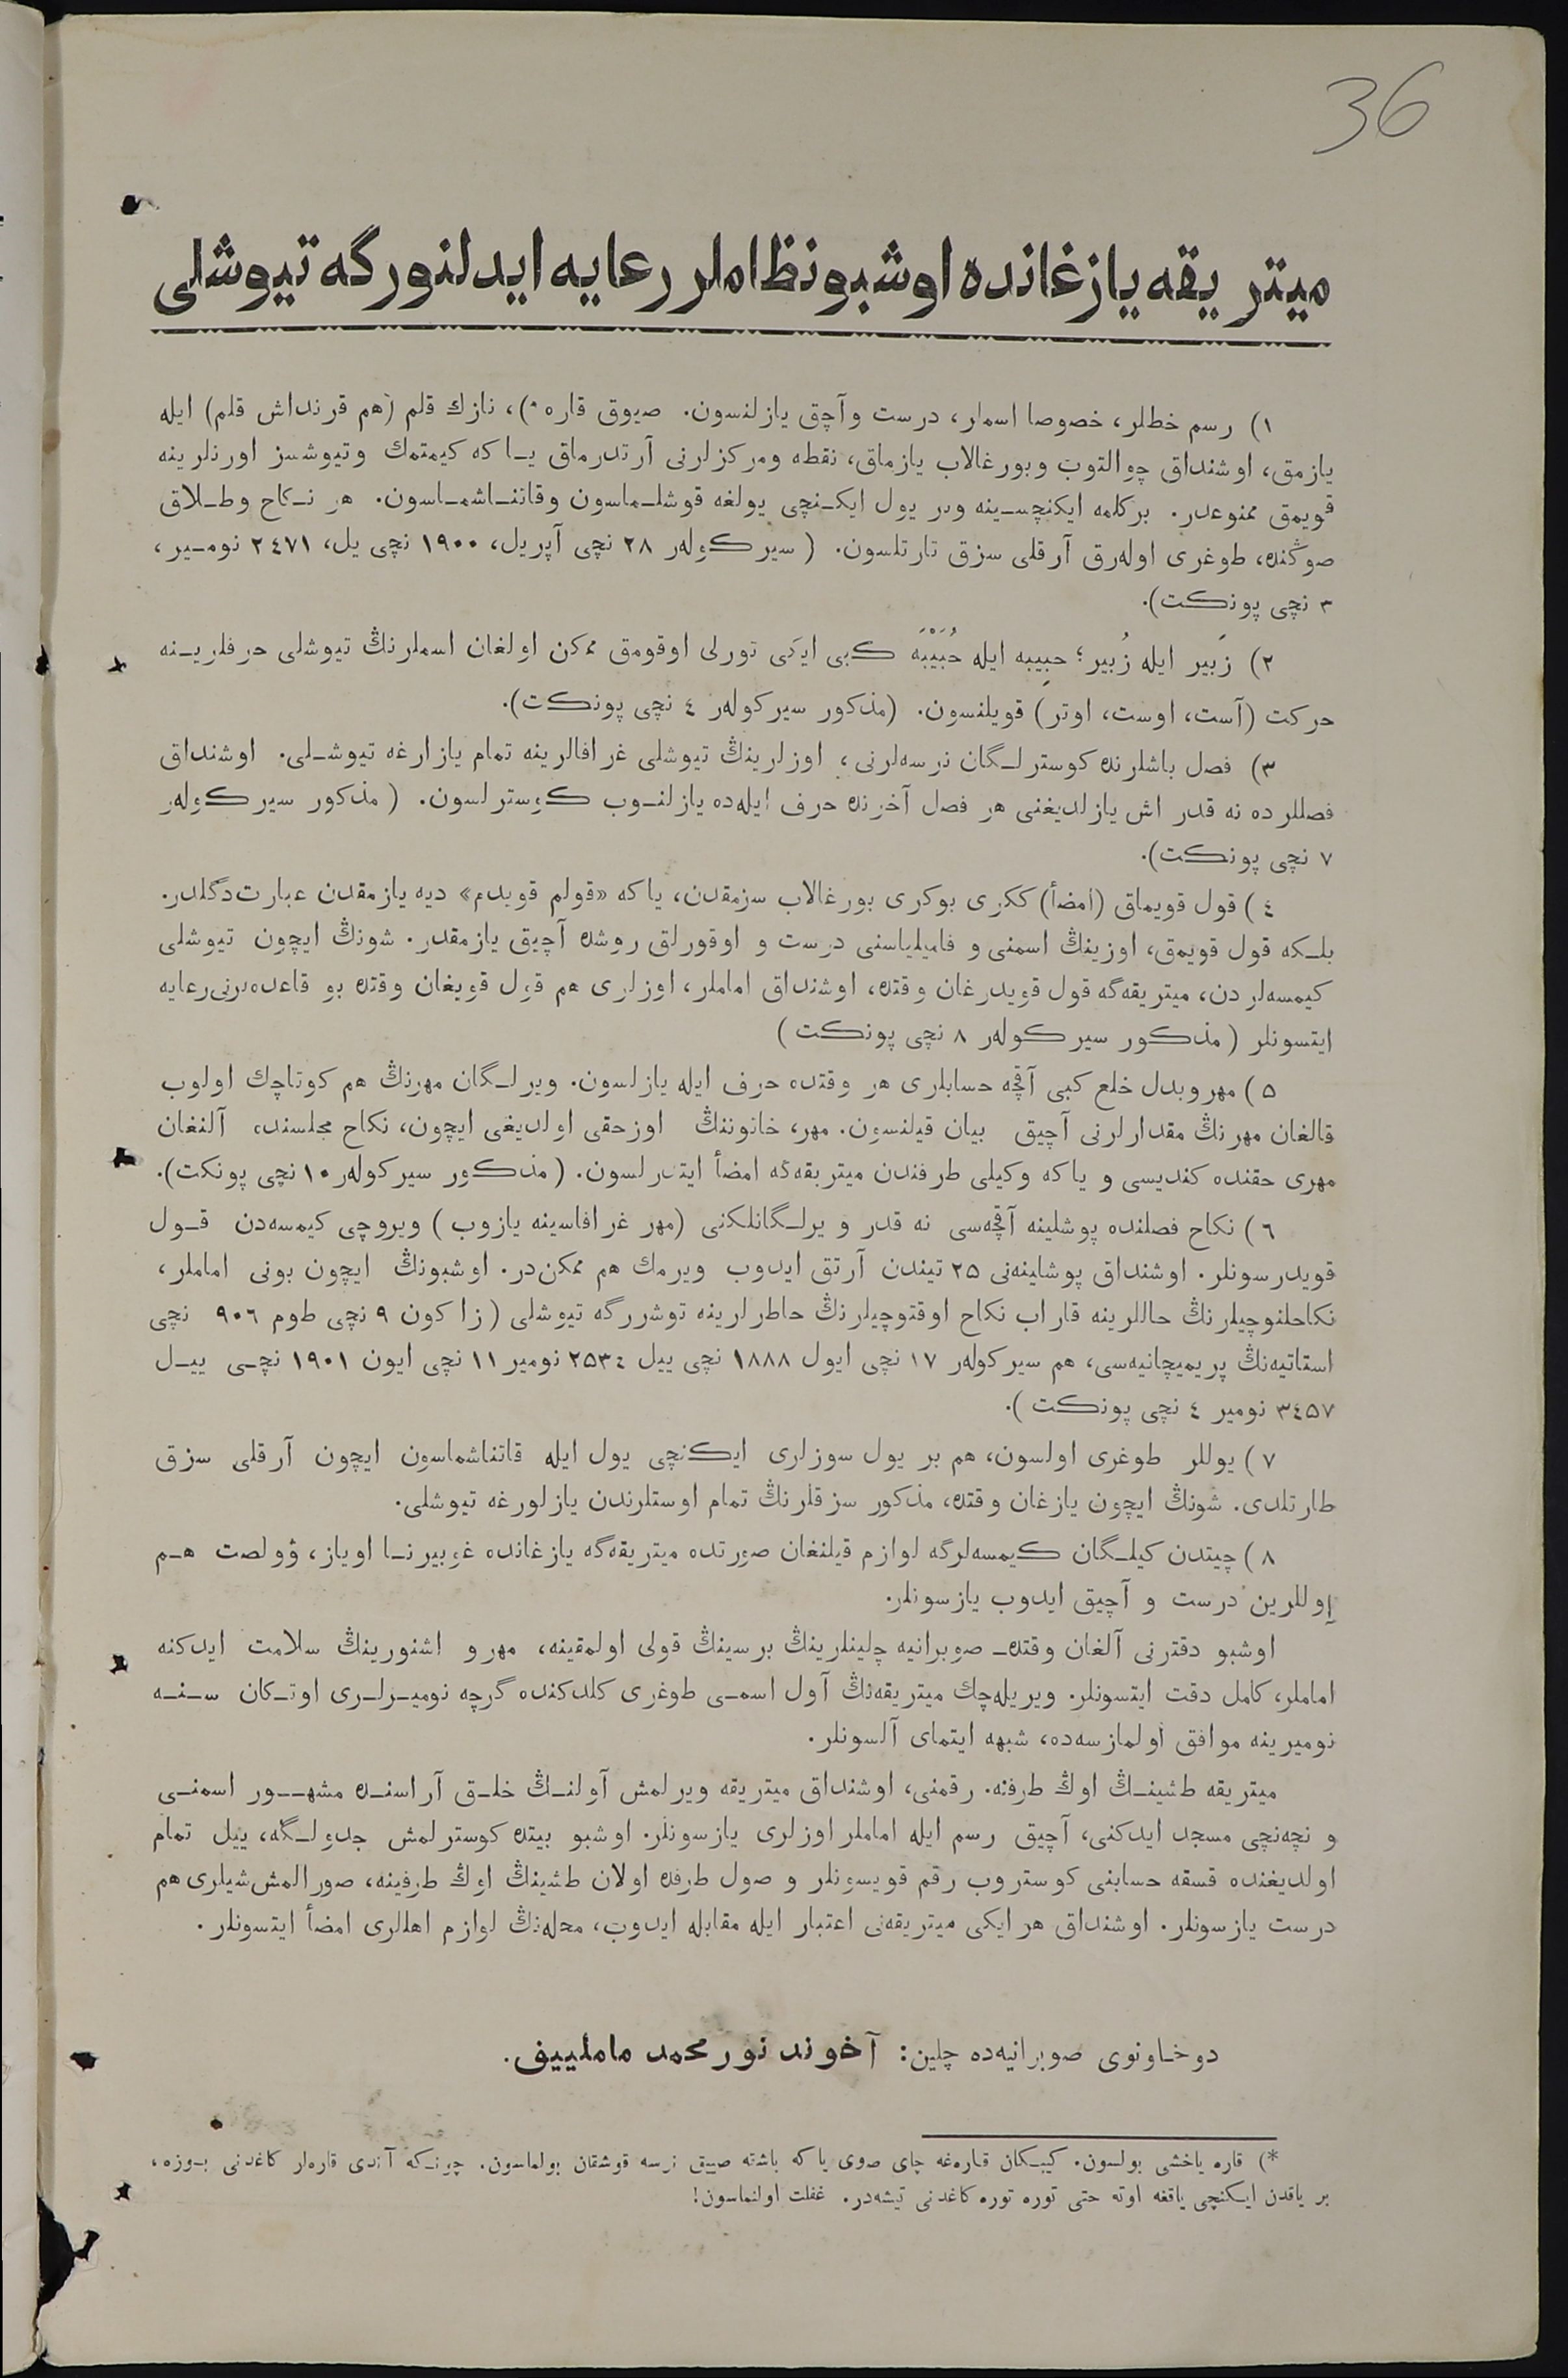 36
میتریقه یازغانده اوشبو نظاملر رعایه ایدلنورگه تیوشلی
۱) رسم خطلر، خصوصا اسملر، درست وآچق یازلنسون. صیوق قاره *)، نازك قلم (هم قرنداش قلم) ایله
یازمق، اوشنداق چوالتوب وبورغالاب یازماق، نقطه ومرکزلرنی آرتدرماق یاکه کیمتمك وتیوشسز اورنلرینه
قویمق ممنوعدر. برکلمه ایکنچسینه وبر یول ایکنچی یولغه قوشلماسون وقاتناشماسون. هر نکاح وطلاق
صوڭنده، طوغری اولهرق آرقلی سزق تارتلسون. (سیرکولهر ۲۸ نچی آپریل، ۱۹۰۰ نچی یل، ۲٤۷۱ نومیر،
۳ نچی پونکت).
۲) زَبیر ایله زُبیر؛ حبِیبه ایله حُبَیْبَه کبی ایکی تورلی اوقومق ممکن اولغان اسملرنڭ تیوشلی حرفلرینه
حرکت (آست، اوست، اوتر) قویلنسون. (مذکور سیرکولهر ٤ نچی پونکت).
۳) فصل باشلرنده کوسترلگان نرسهلرنی، اوزلرینڭ تیوشلی غرافالرینه تمام یازارغه تیوشلی. اوشنداق
فصللرده نه قدر اش یازلدیغنی هر فصل آخرنده حرف ایلهده یازلنوب کوسترلسون. (مذکور سیرکولهر
۷ نچی پونکت).
٤) قول قویماق (امضأ) ککری بوکری بورغالاب سزمقدن، یاکه «قولم قویدم» دیه یازمقدن عبارت دگلدر.
بلکه قول قویمق، اوزینڭ اسمنی و فامیلیاسنی درست و اوقورلق روشده آچیق یازمقدر. شونڭ ایچون تیوشلی
کیمسهلردن، میتریقهگه قول قویدرغان وقتده، اوشنداق اماملر، اوزلری هم قول قویغان وقتده بو قاعدهلرنی رعایه
ایتسونلر (مذکور سیرکولهر ۸ نچی پونکت)
۵) مهر وبدل خلع کبی آقچه حسابلری هر وقتده حرف ایله یازلسون. ویرلگان مهرنڭ هم کوتاچك اولوب
قالغان مهرنڭ مقدارلرنی آچیق بیان قیلنسون. مهر، خاتوننڭ اوزحقی اولدیغی ایچون، نکاح مجلسنده آلنغان
مهری حقنده کندیسی و یاکه وکیلی طرفندن میتریقهگه امضأ ایتدرلسون. (مذکور سیرکولهر ۱۰ نچی پونکت).
٦) نکاح فصلنده پوشلینه آقچهسی نه قدر ویرلگانلکنی (مهر غرافاسینه یازوب) ویروچی کیمسهدن قول
قویدرسونلر. اوشنداق پوشلینهنی ۲۵ تیندن آرتق ایدوب ویرمك هم ممکن در. اوشبونڭ ایچون بونی اماملر،
نکاحلنوچیلرنڭ حاللرینه قاراب نکاح اوقتوچیلرنڭ خاطرلرینه توشررگه تیوشلی (زاکون ۹ نچی طوم ۹۰٦ نچی
استاتیهنڭ پریمیچانیهسی، هم سیرکولهر ۱۷ نچی ایول ۱۸۸۸ نچی ییل ۲۵۳٤ نومیر ۱۱ نچی ایون ۱۹۰۱ نچی ییل
۳٤۵۷ نومیر ٤ نچی پونکت).
۷) یوللر طوغری اولسون، هم بر یول سوزلری ایکنچی یول ایله قاتناشماسون ایچون آرقلی سزق
طارتلدی. شونڭ ایچون یازغان وقتده، مذکور سزقلرنڭ تمام اوستلرندن یازلورغه تیوشلی.
۸) چیتدن کیلگان کیمسهلرگه لوازم قیلنغان صورتده میتریقهگه یازغانده غوبیرنا اویاز، وولصت هم
آوللرین درست و آچیق ایدوب یازسونلر.
اوشبو دفترنی آلغان وقتده صوبرانیه چلینلرینڭ برسینڭ قولی اولمقینه، مهر و اشنورینڭ سلامت ایدکنه
اماملر، کامل دقت ایتسونلر. ویریلهچك میتریقهنڭ آول اسمی طوغری کلدکنده گرچه نومیرلری اوتکان سنه
نومیرینه موافق اولمازسهده، شبهه ایتمای آلسونلر.
میتریقه طشینڭ اوڭ طرفنه. رقمنی، اوشنداق میتریقه ویرلمش آولنڭ خلق آراسنده مشهور اسمنی
و نچهنچی مسجد ایدکنی، آچیق رسم ایله اماملر اوزلری یازسونلر. اوشبو بیتده کوسترلمش جدولگه، ییل تمام
اولدیغنده قسقه حسابنی کوستروب رقم قویسونلر و صول طرفده اولان طشینڭ اوڭ طرفینه، صورالمش شیلری هم
درست یازسونلر. اوشنداق هر ایکی میتریقهنی اعتبار ایله مقابله ایدوب، محلهنڭ لوازم اهللری امضأ ایتسونلر.
دوخاونوی صوبرانیهده چلین: آخوند نورمحمد ماملییف.
*) قاره یاخشی بولسون. کیبکان قارهغه چای صوی یاکه باشقه صییق نرسه قوشقان بولماسون. چونکه آندی قارهلر کاغدنی بوزه،
بر یاقدن ایکنچی یاققه اوته حتی توره توره کاغدنی تیشهدر. غفلت اولنماسون!